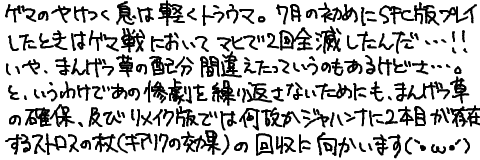 ゲマのやけつく息は軽くトラウマ。7月の初めにSFC版プレイ
したときはゲマ戦において マヒで2回全滅したんだ…!!
いや、まんげつ草の配分間違えたっていうのもあるけどさ…。
と、いうわけであの惨劇を繰り返さないためにも、まんげつ草
の確保、及びリメイク版では何故かジャハンナに2本目が存在
するストロスの杖(キアリクの効果)の回収に向かいます(`・ω・´)